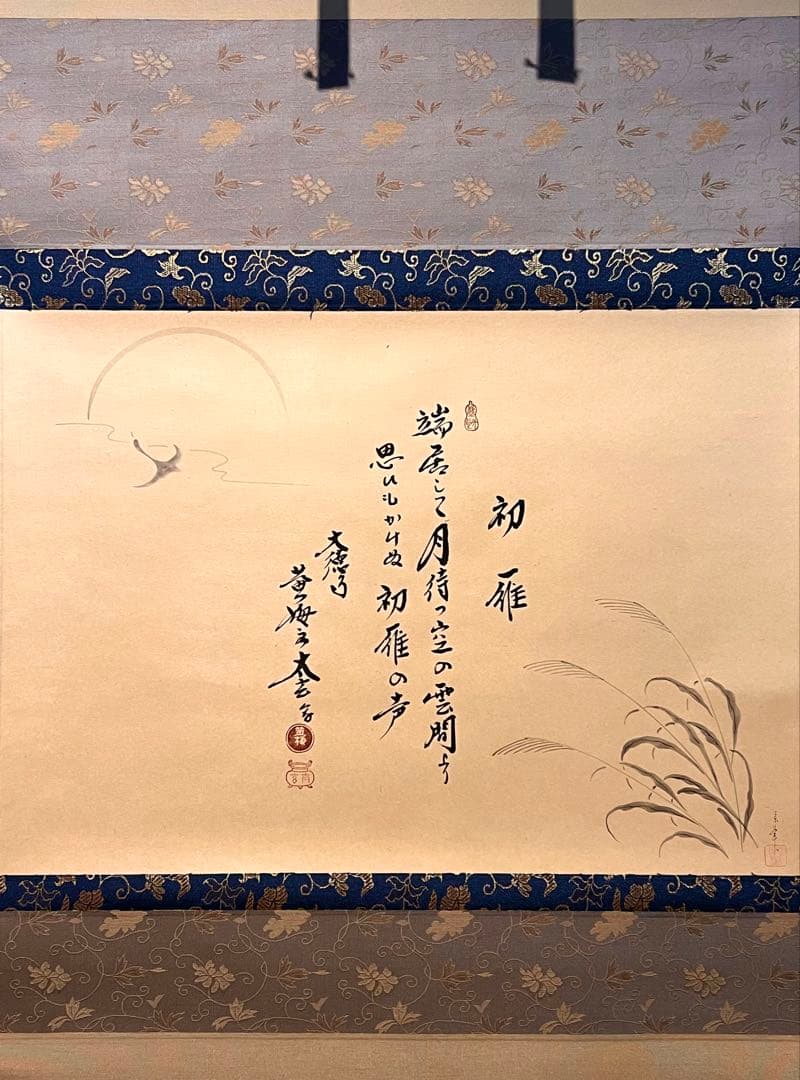 初雁
端居して月待つ空の雲間より
思ひもかけぬ初雁の声
大徳寺
黄梅